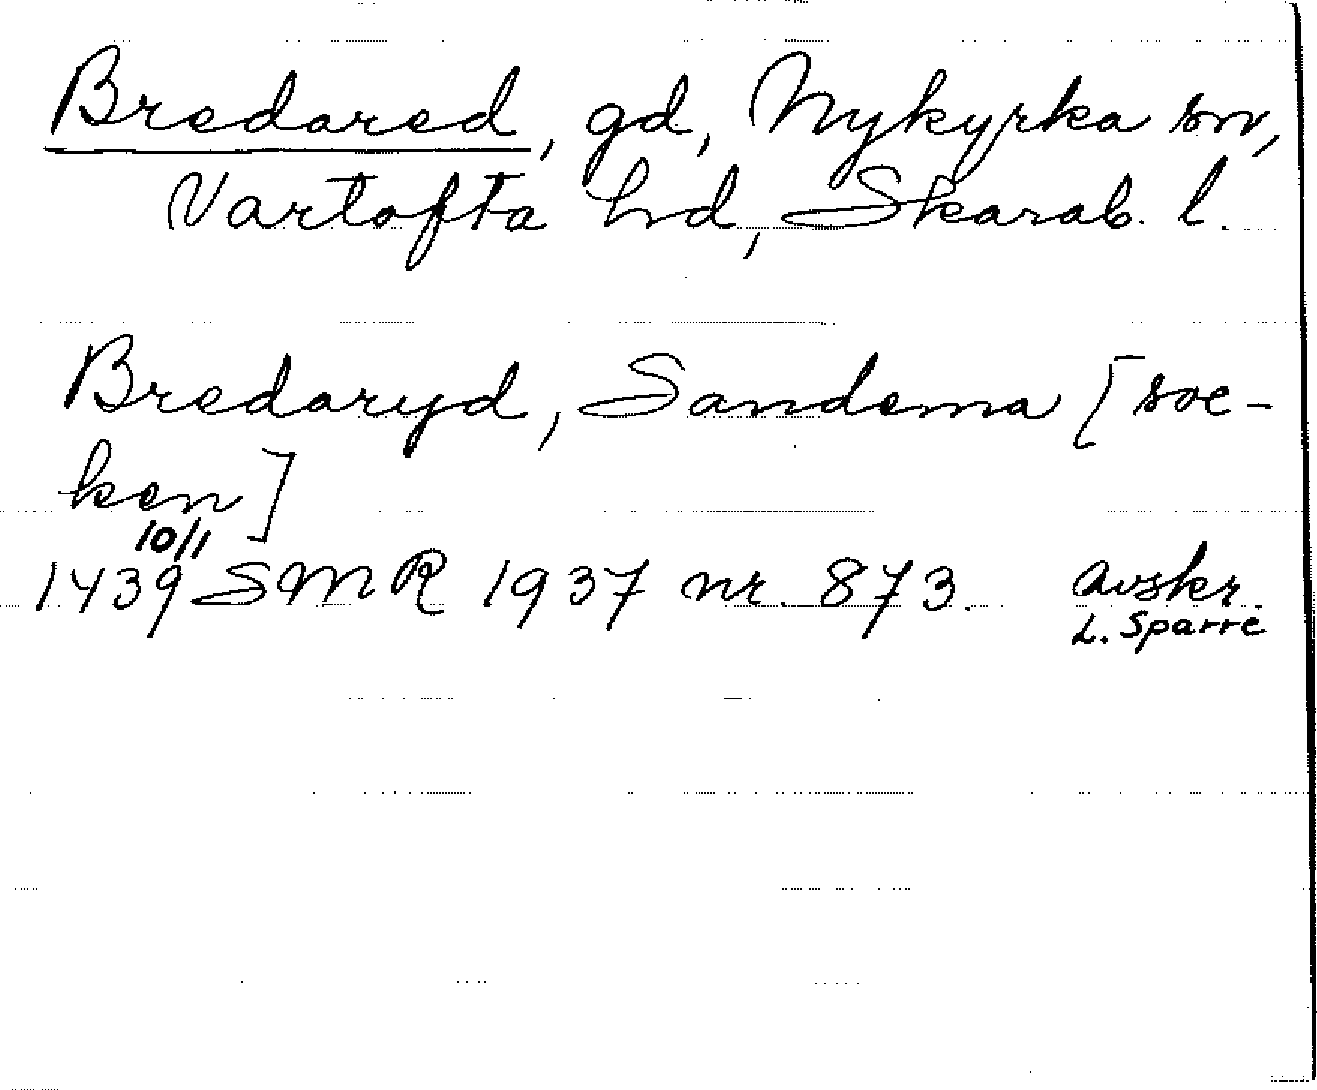 Bredared, gd, Nykyrka sn,
Vartofta hd, Skarab. l.
Bredaryd, Sandema [soc-
ken]
10/1
1439 SMR 1937 nr. 873. Avskr.
L. Sparre